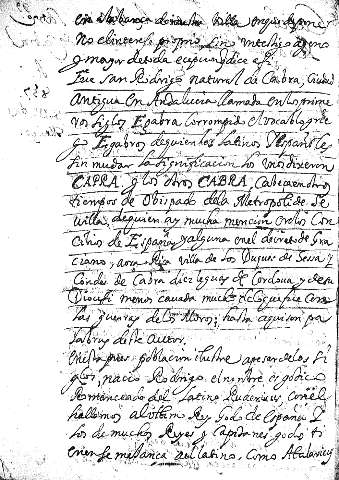 con alabanca de nuestra Villa en que su pluma
No el interese proprio sino instestigo ageno
y mayor de toda ecepcion dice asi.
Fue San Rodrigo natural de Cabra, Ciudad
Antigua en Andalucia llamada en los prime
ros siglos Egabra corrompido el vocablo grie
go Egabros de quien los Latinos y Españoles
sin mudar la significacion los unos dixeron
CAPRA, y los otros CABRA, Cabeca en otros
tiempos de Obispado de la Metropoli de Se
villa, de quien ay mucha mencion en los Con
cilios de España, y alguna en el decreto de Gra
ciano, aora Rica villa de los Duques de Sesa y
Condes de Cabra diez leguas de Cordova, y de su
Diocesi menos causada mucho de lo que fue con
las guerras de los Moros; hasta aqui son pa
labras deste Autor.
En esta pues poblacion ilustre a pesar de los si
glos, nacio Rodrigo el nombre es godico
Romanceado del Latino Rudericus, con el
hallamos al ultimo Rey Godo de España I
los de muchos Reyes y Capitanes godos ti
enen semejanca al latino, como Atalarico